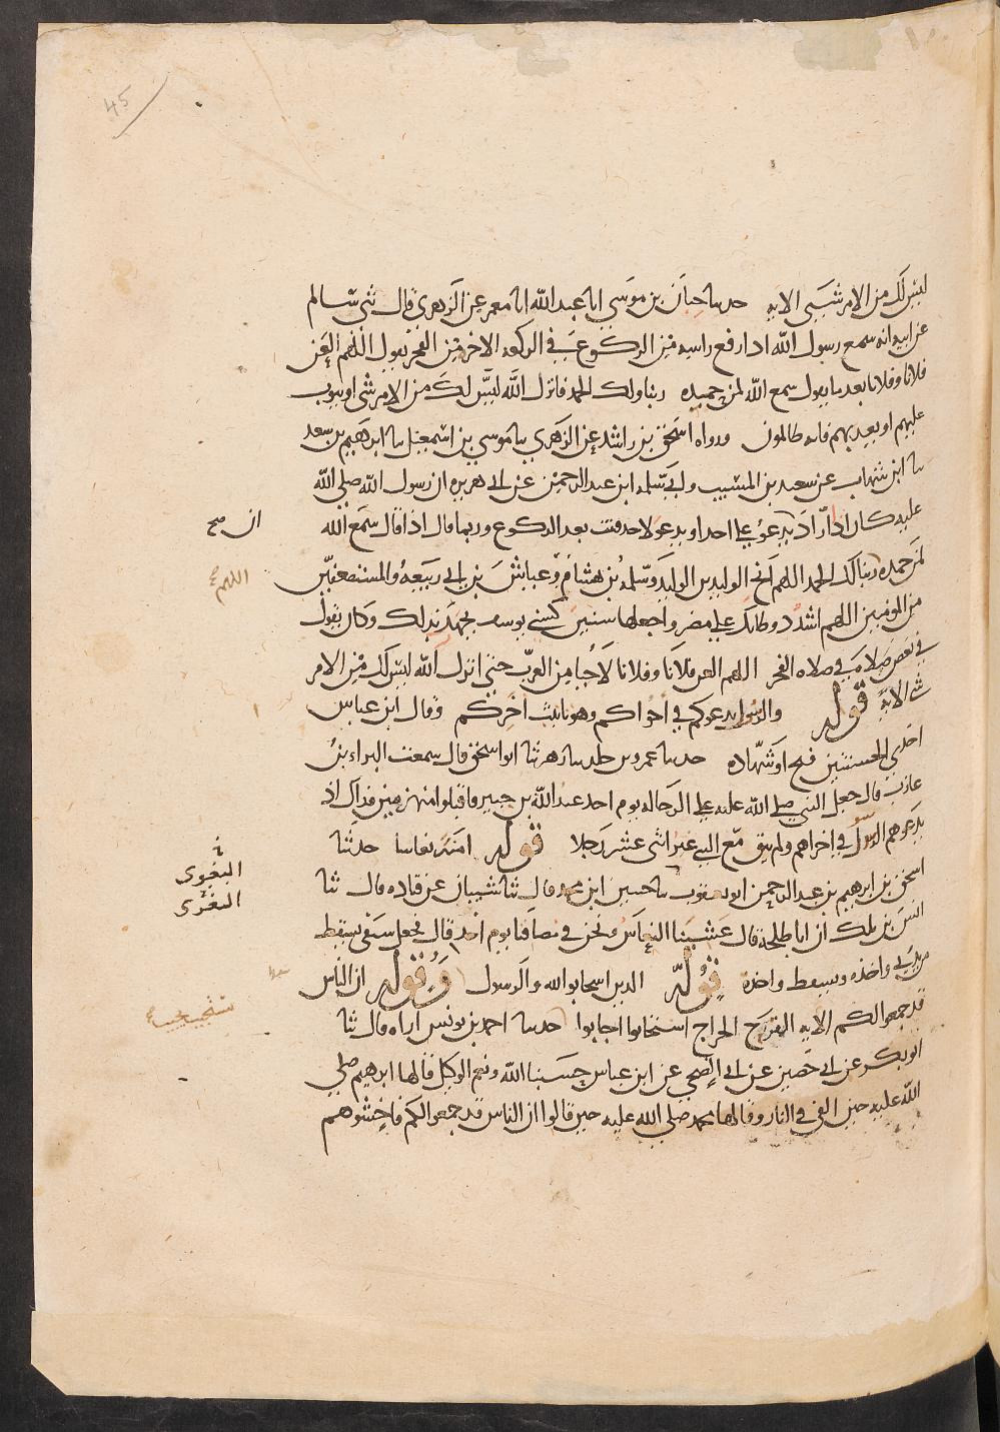 45
ليس لك من الامر شيى الايه حدىىا حبان بن موسي انا عبد الله انا معمر عن الزهري قال ثني سالم
عن ابيه انه سمع رسول الله اذا رفع راسه من الركوع في الركعه الاخره من الفجر يقول اللهم العن
فلانا وفلانا بعد ما يقول سمع الله لمن حمده ربنا ولك الحمد فانزل الله ليس لك من الامر شي او يتوب
عليهم او يعذبهم فانهم ظالمون ورواه اسحق بن راشد عن الزهري ىا موسي بن اسمعيل ىا ابرهيم بن سعد
ىا ابن شهاب عن سعيد بن المسيب وابي سلمه ابن عبد الرحمن عن ابي هريره ان رسول الله صلي الله
عليه كان اذا اراد يدعوُ علي احد او يدعو لاحد قنت بعد الركوع وربما قال اذا قال سمع الله
ان صح
لمن حمده ربنا لك الحمد اللهم انج الوليد بن الوليد وسلمهُ بن هشام وعباش بن ابي ربيعه والمستضعفين
اللهم
من المومنين اللهم اشدد وطاتك علي مضر واجعلها سنين كسني يوسف يجهر بذلك وكان يقول
في بعض صلاته في صلاه الفجر اللهم العن فلانا وفلانا لاحيا من العرب حتي انزل الله ليس لك من الامر
شي الايه قوله والرسول يدعوكم في اخراكم وهو تانيث اخركم وقال ابن عباس
احدي الحسنيين فتح او شهاده حدىىا عمرو بن خلد ىا زهر ثنا ابو اسحق قال سمعت البراء بن
عازب قال جعل النبي صلي الله عليه علي الرجاله يوم احد عبد الله بن جبير فاقبلوا منهزمين فذاك اذ
يدعوهم الرسول في اخراهم ولم يبق مع النبي غير اثني عشر رجلا قوله امنة نعاسا حدثنا
البغوى
البغوى
اسحق بن ابرهيم بن عبد الرحمن ابو يعقوب ىا حسين ابن محمد قال ثنا شيبان عن قتاده قال ثنا
انس بن ملك ان ابا طلحة قال غشينا النعاس ونحن في مصافنا يوم احد قال فجعل سيفي يسقط
من يدي واخذه ويسقط واخذه قوله الذين استجابوا لله والرسول وقوله ان الناس
قد جمعوا لكم الايه القرح الجراح استجابوا اجابوا حدىىا احمد بن يونس اراه قال ثنا
يستجيب
ابو بكر عن ابي حصين عن ابي الضحي عن ابن عباس حسبنا الله ونعم الوكيل قالها ابرهيم صلي
الله عليه حين القي في النار وقالها محمد صلي الله عليه حين قالوا ان الناس قد جمعوا لكم فاخشوهم